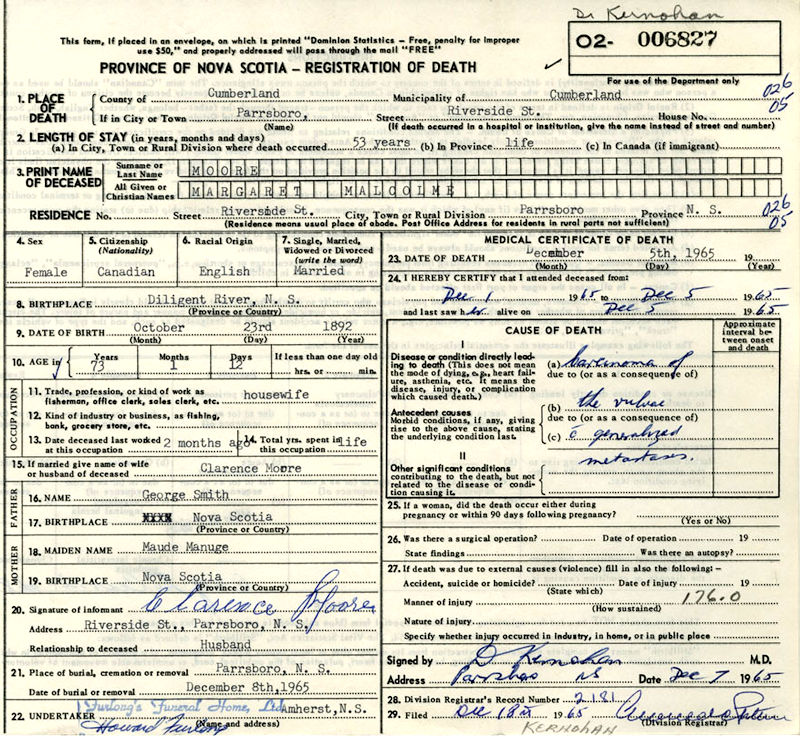 Dr Kernohan
This form, if placed in an envelope, on which is printed "Dominion Statistics - Free, penalty for improper
use $50," and properly addressed will pass through the mail "FREE"
O2- 006827
PROVINCE OF NOVA SCOTIA - REGISTRATION OF DEATH
For use of the Department only
1. PLACE OF DEATH County of Cumberland Municipality of Cumberland 026
If in City or Town Parrsboro, Street Riverside St. House No. 05
(Name) (If death occurred in a hospital or institution, give the name instead of street and number)
2. LENGTH OF STAY (in years, months and days)
(a) In City, Town or Rural Division where death occurred 53 years (b) In Province life (c) In Canada (if immigrant)
3. PRINT NAME OF DECEASED Surname or Last Name MOORE
All Given or Christian Names MARGARET MALCOLME
RESIDENCE No. Street Riverside St. City, Town or Rural Division Parrsboro Province N. S. 026
05
(Residence means usual place of abode. Post Office Address for residents in rural parts not sufficient)
4. Sex Female
5. Citizenship (Nationality) Canadian
6. Racial Origin English
7. Single, Married, Widowed or Divorced (write the word) Married
8. BIRTHPLACE Diligent River, N. S.
(Province or Country)
9. DATE OF BIRTH October 23rd 1892
(Month) (Day) (Year)
10. AGE in Years 73 Months 1 Days 12 If less than one day old
hrs. or min.
OCCUPATION
11. Trade, profession, or kind of work as housewife
fisherman, office clerk, sales clerk, etc.
12. Kind of industry or business, as fishing,
bank, grocery store, etc.
13. Date deceased last worked at this occupation 2 months ago 14. Total yrs. spent in this occupation life
15. If married give name of wife or husband of deceased Clarence Moore
FATHER
16. NAME George Smith
17. BIRTHPLACE XXXX Nova Scotia
(Province or Country)
MOTHER
18. MAIDEN NAME Maude Manuge
19. BIRTHPLACE Nova Scotia
(Province or Country)
20. Signature of informant Clarence Moore
Address Riverside St., Parrsboro, N. S.
Relationship to deceased Husband
21. Place of burial, cremation or removal Parrsboro, N. S.
Date of burial or removal December 8th,1965
Furlong's Funeral Home, Ltd. Amherst,N.S.
22. UNDERTAKER Howard Furlong
(Name and address)
MEDICAL CERTIFICATE OF DEATH
23. DATE OF DEATH December 5th, 1965 19
(Month) (Day) (Year)
24. I HEREBY CERTIFY that I attended deceased from:
Dec 1 1965 to Dec 5 1965
and last saw her alive on Dec 5 1965
CAUSE OF DEATH
Approximate interval between onset and death
I
Disease or condition directly leading to death (This does not mean the mode of dying, e.g., heart failure, asthenia, etc. It means the disease, injury, or complication which caused death.)
(a) Carcinoma of
due to (or as a consequence of)
Antecedent causes
Morbid conditions, if any, giving rise to the above cause, stating the underlying condition last.
(b) the vulva
due to (or as a consequence of)
(c) c̄ generalized
metastases.
II
Other significant conditions
contributing to the death, but not related to the disease or condition causing it.
25. If a woman, did the death occur either during
pregnancy or within 90 days following pregnancy?
(Yes or No)
26. Was there a surgical operation? Date of operation 19
State findings Was there an autopsy?
27. If death was due to external causes (violence) fill in also the following:-
Accident, suicide or homicide? Date of injury 19
(State which)
Manner of injury 176.0
(How sustained)
Nature of injury
Specify whether injury occurred in industry, in home, or in public place
Signed by D Kernohan M.D.
Address Parrsboro NS Date Dec 7 1965
28. Division Registrar's Record Number 2181
29. Filed Dec 18th 1965
(Division Registrar)
KERNOHAN